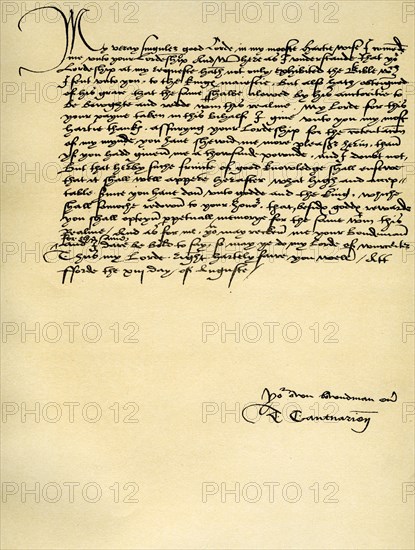 My veray singuler good Lorde, in my mooste hartie wise I commend
me unto your Lordeship. And whereas I understand that yor
Lordeship at my requeste hath not only exhibited the Bible wch
I sent unto you, to the Kinges maiestie, but also hath obteigned
of his grace that the same shalbe alowed by his auctoritie to
be bowght and redde within this realme. My Lorde for this
your payne taken in this behalf I give unto you my most
hartie thanks, assuryng your Lordeship for the contentacion
of my mynde, you have shewid me more pleasor herin, than
yf you hadd given me a thowsand pownde, and I doubt not,
But that herby such fruite of good knowledge shall ensewe
that it shall well appere hereafter what high and accep-
table service you have don unto godde and the king, which
shall somoche redown to your honor, that, beside godds rewarde
you shall opteyn perpetuall memorye for the same within this
realme. And as for me, you may recken me your bondman
for the same
And I dare be bold to say so may ye do my Lorde of Wurcester
Thus my Lorde, right hartely fare you well. Att
fforde the xiii day of Auguste
Yor own boundman ever
T Cantuarien
PHOTO 12